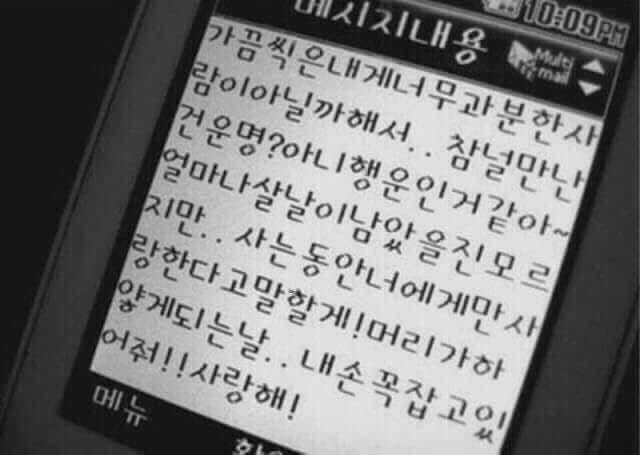 메시지내용
10:09PM
Multi
mail
가끔씩은내게너무과분한사
람이아닐까해서.. 참널만난
건운명?아니행운인거같아~
얼마나살날이남았을진모르
지만.. 사는동안너에게만사
랑한다고말할게!머리가하
얗게되는날.. 내손꼭잡고있
어줘!!사랑해!
메뉴